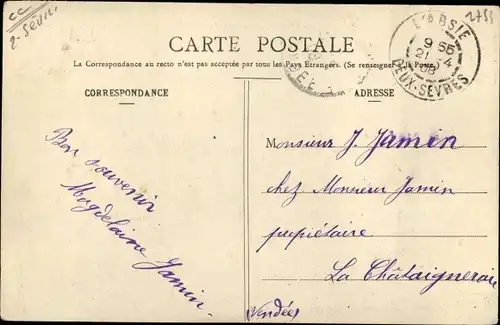 CC
2-Sevr
2755
CARTE POSTALE
La Correspondance au recto n'est pas acceptée par tous les Pays Etrangers. (Se renseigner à la Poste.)
L'ABSIE
9 55
21 4
08
DEUX-SÈVRES
CORRESPONDANCE
ADRESSE
Bon souvenir
Magdelaine
Jamin
Monsieur J. Jamin
chez Monsieur Jamin
propiétaire
La Châtaigneraie
(Vendée)